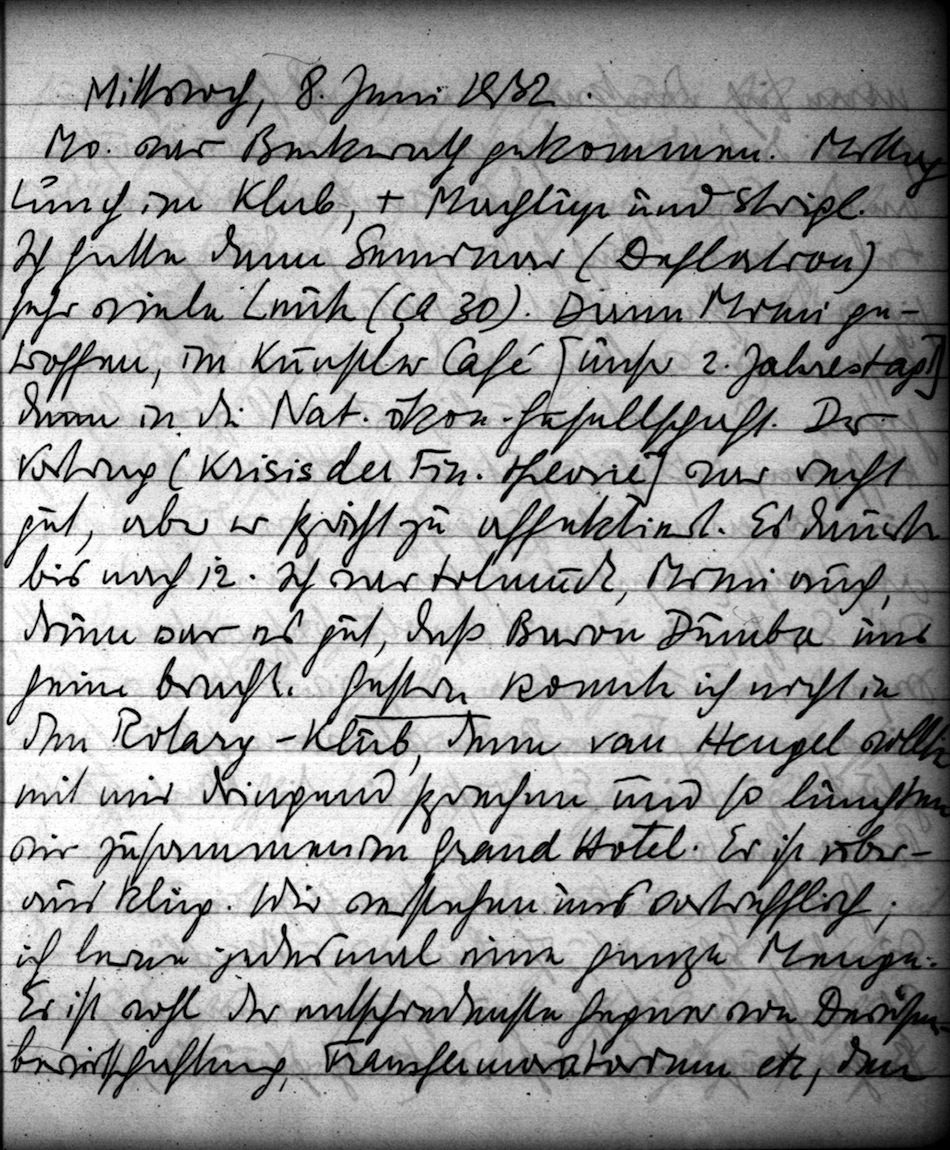 Mittwoch, 8. Juni 1932.
Mo. war Beckerath gekommen. Mittag
Lunch im Klub, + Machlup und Strigl.
Ich hatte dann Seminar (Deflation)
sehr viele Leute (ca 30). Dann Mimi ge-
troffen, im Künstler Café [unser 2. Jahrestag!]
dann in die Nat. ökon. Gesellschaft. Der
Vortrag (Krisis der Fin. theorie) war recht
gut, aber er spricht zu affektiert. Es dauerte
bis nach 12. Ich war todmüde, Mimi auch,
drum war es gut, daß Baron Dumba uns
heim bracht. Gestern konnte ich nicht in
den Rotary-Klub, denn van Hengel wollte
mit mir dringend sprechen und so lunchten
wir zusammen im Grand Hotel. Er ist über-
aus klug. Wir verstehen uns vortrefflich;
ich lerne jedesmal eine ganze Menge.
Er ist wohl der entschiedenste Gegner von Devisen
bewirtschaftung, Transfermoratorium etc, den